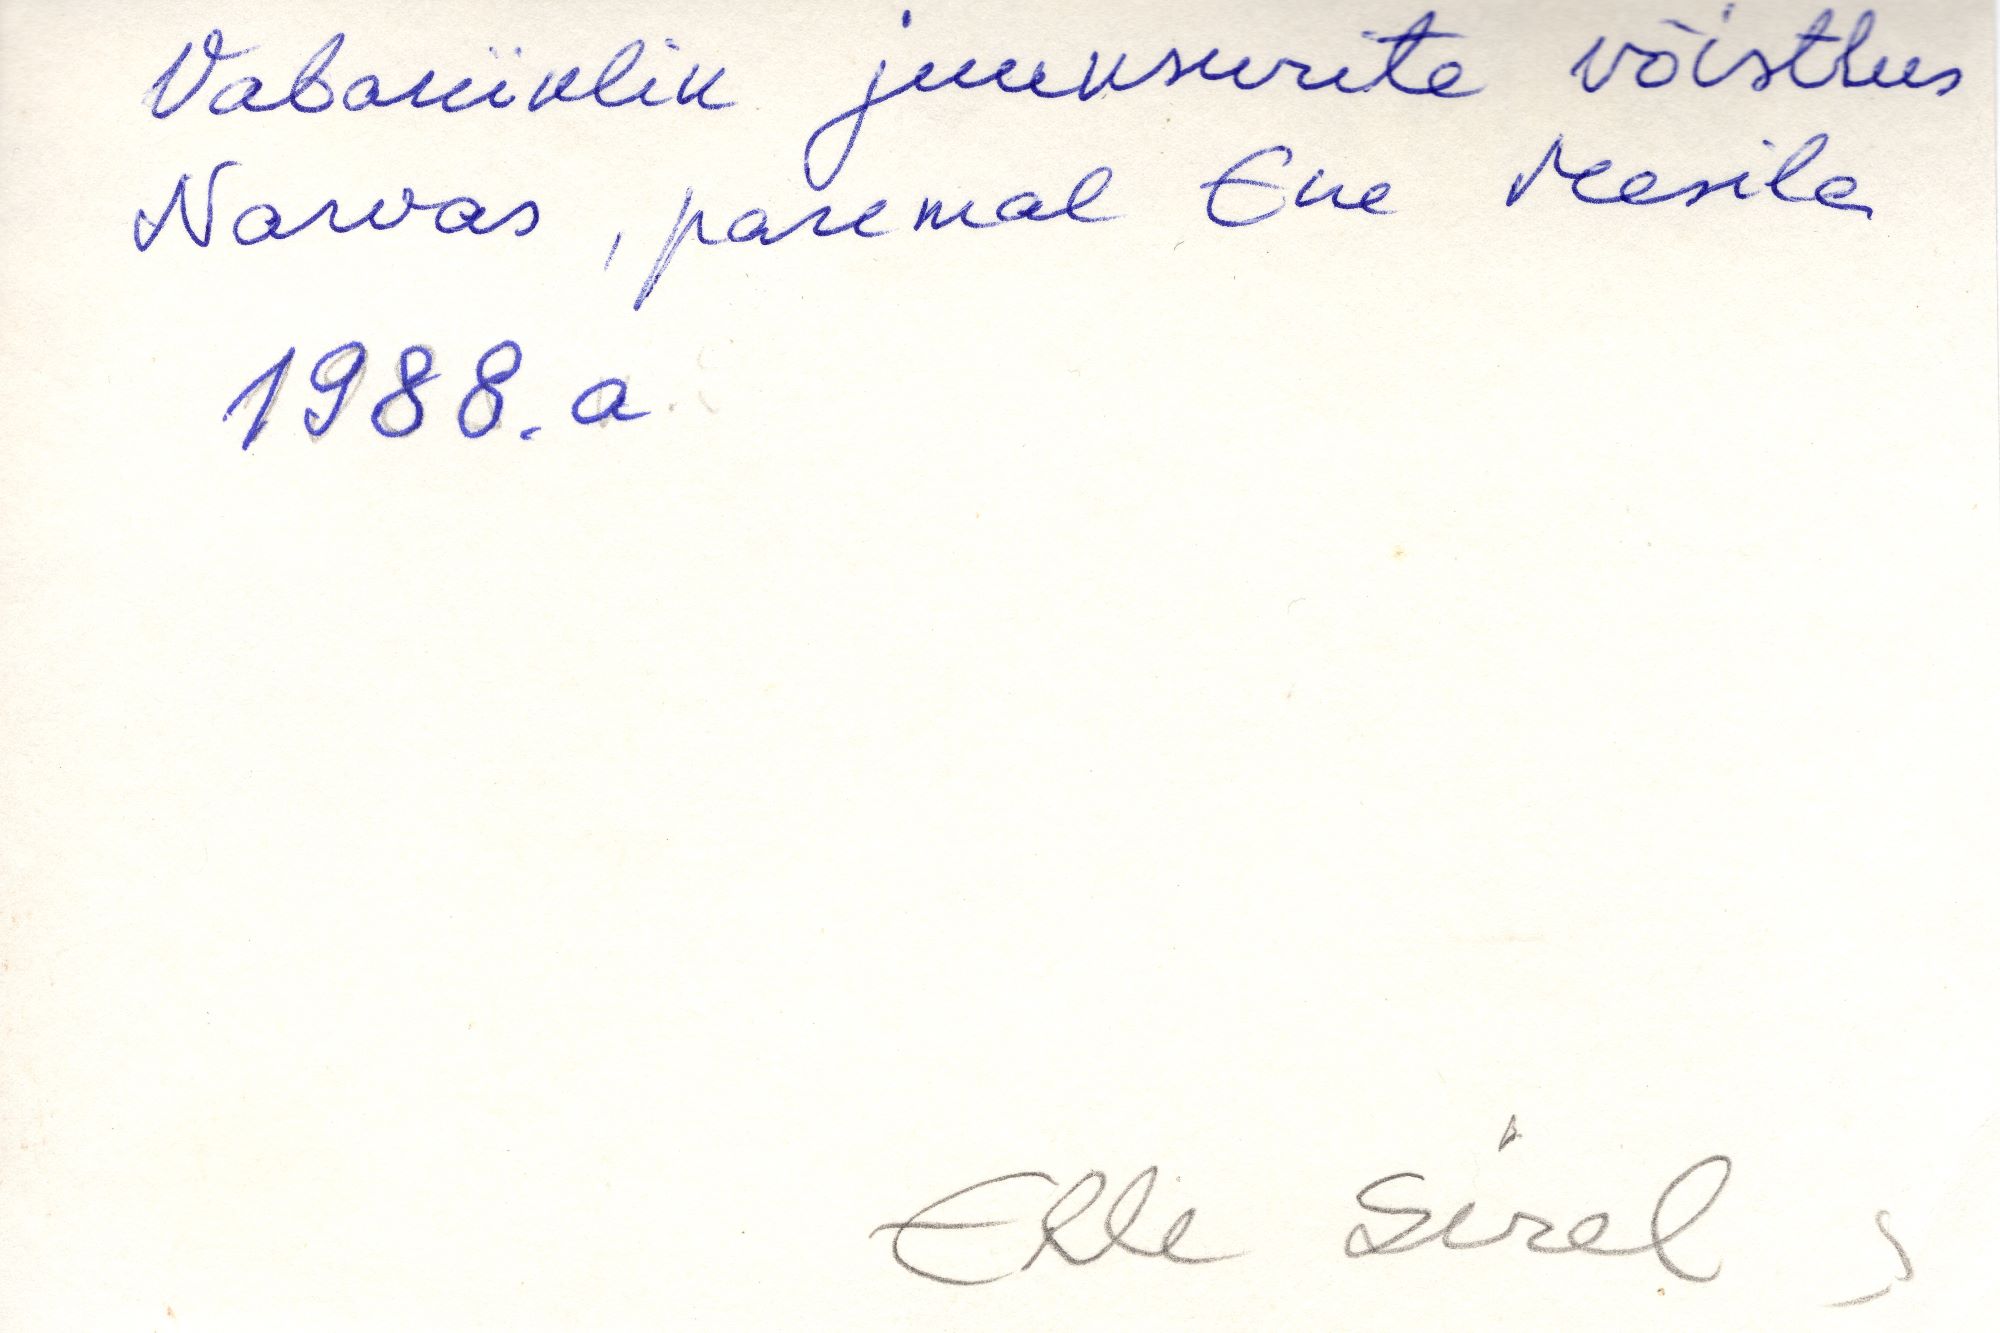 Vabariiklik juuksurite võistlus
Narvas, paremal Ene Mesila
1988.a
Elle Sirel